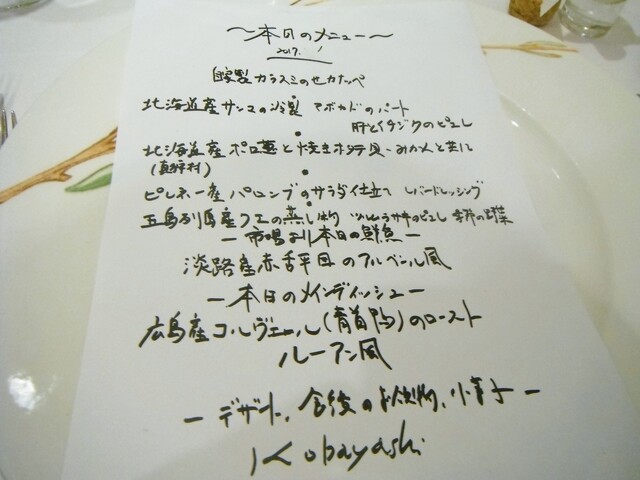 〜本日のメニュー〜
2017. /
自家製カラスミのせカナッペ
北海道産サンマの冷製 アボカドのパート
肝とイチジクのピュレ
北海道産ポロ葱と焼きホタテ貝・みかんと共に
(真狩村)
ピレネー産パロンブのサラダ仕立て レバードレッシング
五島列島産クエの蒸し物 のピュレ 季節の野菜
ー市場より本日の鮮魚ー
淡路産赤舌平目のアルベール風
ー本日のメインディッシュー
広島産コルヴェール(青首鴨)のロースト
ルーアン風
ーデザート、食後のお飲物、小菓子ー
Kobayashi